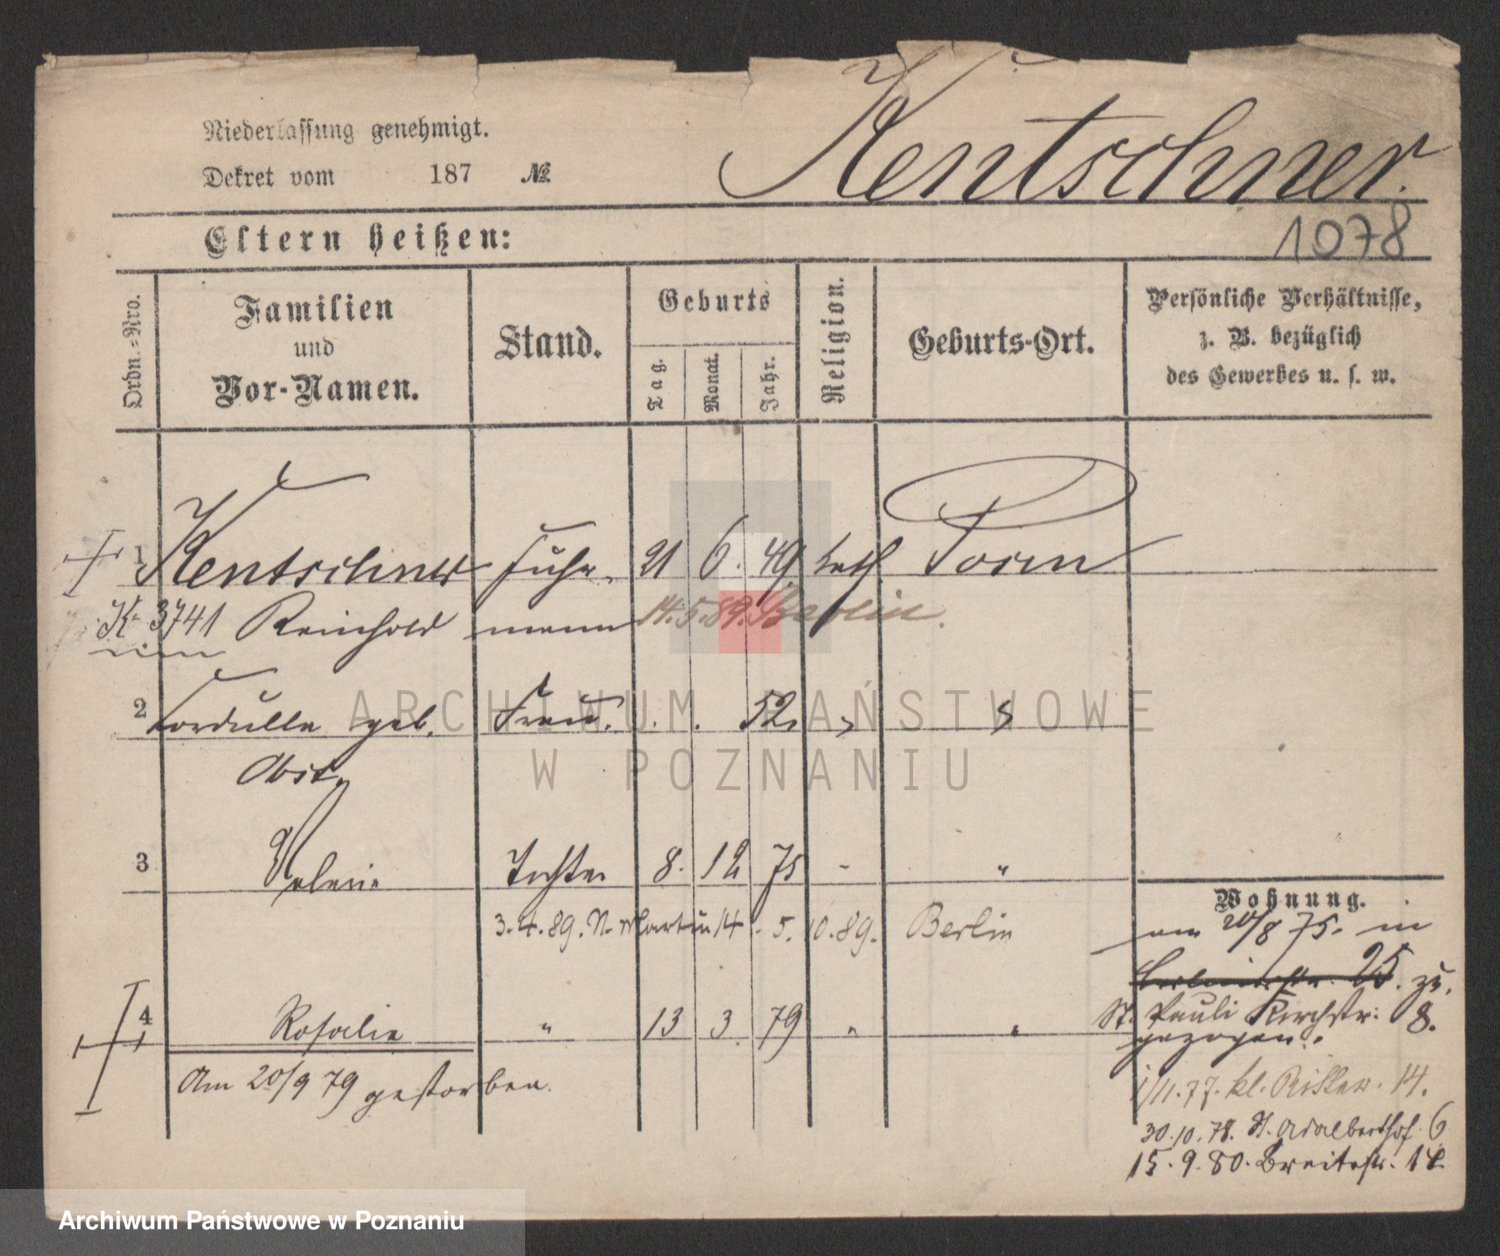 Niederlassung genehmigt.
Dekret vom 187 №
Kentschner.
1078
Eltern heißen:
Ordn.-Nro.
Familien und Vor-Namen.
Stand.
Geburts
Tag. Monat. Jahr.
Religion.
Geburts-Ort.
Persönliche Verhältnisse,
z. B. bezüglich
des Gewerbes u. s. w.
1 Kentschner Fuhr- 21 6. 49. kath. Posen
K. 3741 Reinhold mann 14.5.89. Berlin.
2 Kordulla geb. Frau. . . 52. "
3 Valerie Tochter 8. 12 75 - "
3.4.89. N. Martin 14. 5.10.89. Berlin
4 Rosalie " 13 3. 79 " "
Am 20/9 79 gestorben.
Wohnung.
am 20/8 75. in
25. zu.
St. Pauli Kirchstr. 8.
gezogen.
1/11.77. kl. Ritter. 14.
30.10.78. St. Adalberthof. 6
15.9.80. Breitestr. 12
ARCHIWUM PAŃSTWOWE
W POZNANIU
Archiwum Państwowe w Poznaniu